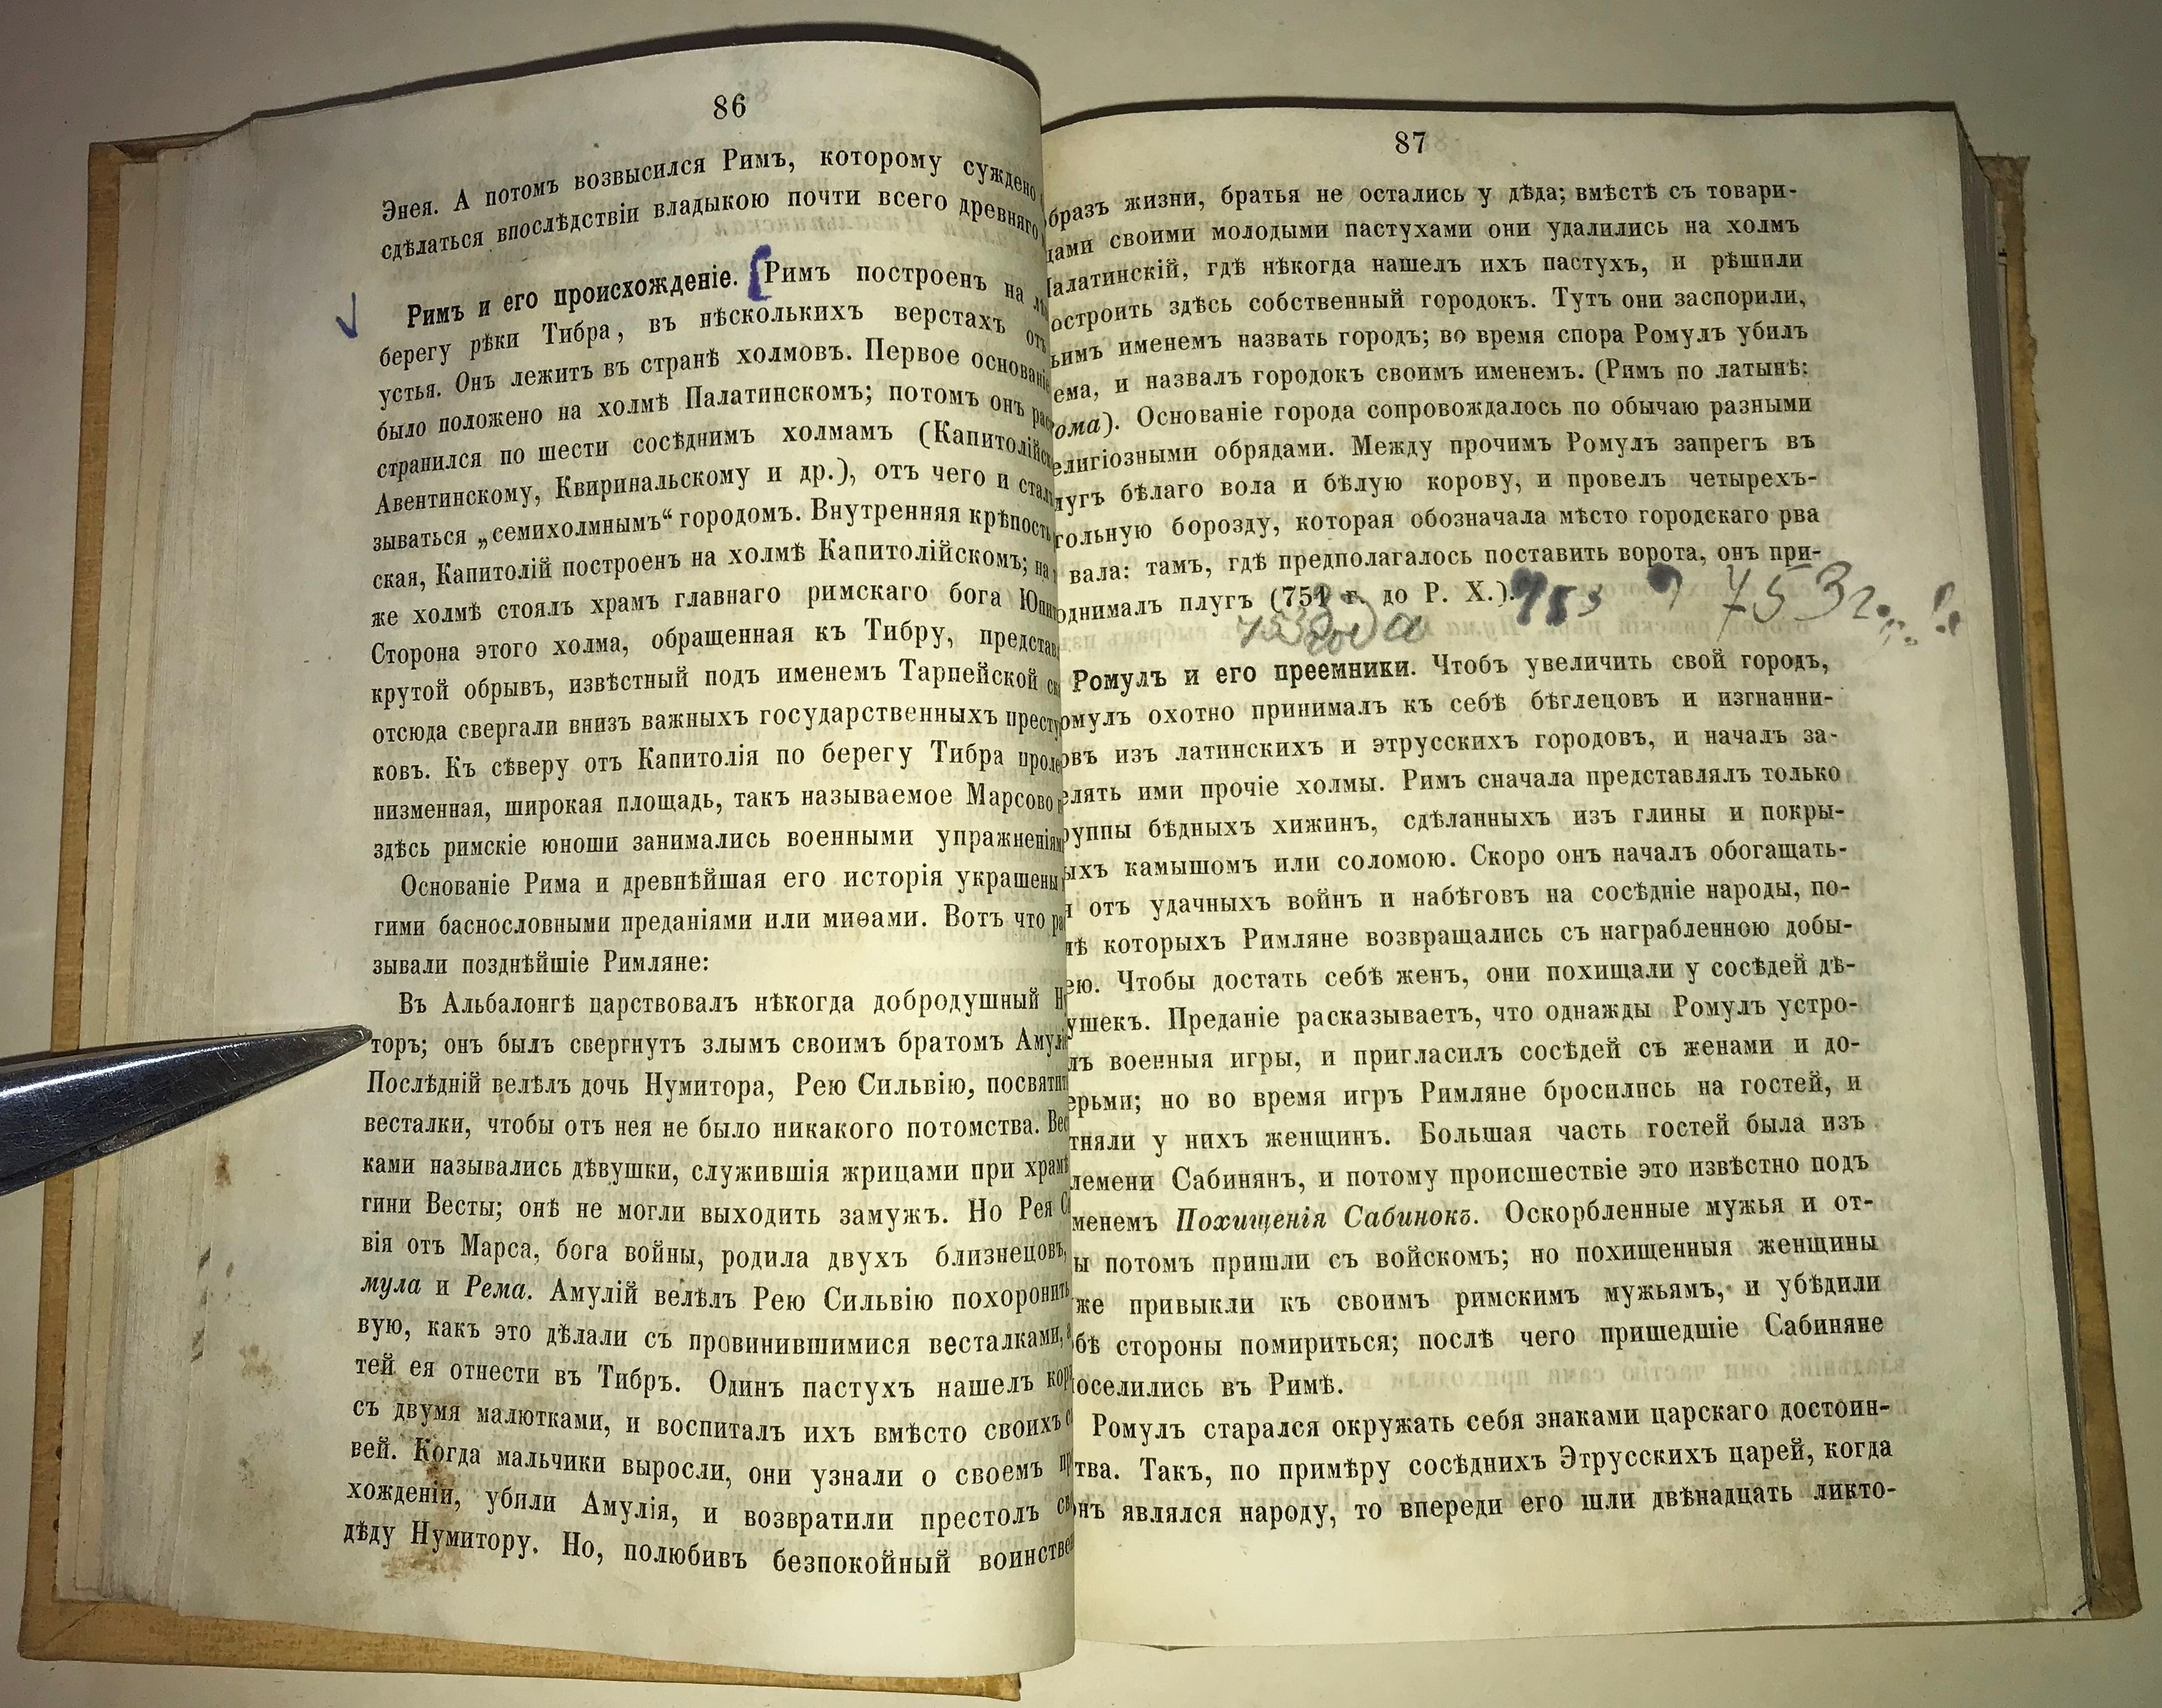 86
Энея. А потомъ возвысился Римъ, которому суждено
сдѣлаться впослѣдствіи владыкою почти всего древняго
Римъ и его происхожденіе. Римъ построенъ на
берегу рѣки Тибра, въ нѣсколькихъ верстахъ отъ
устья. Онъ лежитъ въ странѣ холмовъ. Первое основаніе
было положено на холмѣ Палатинскомъ; потомъ онъ рас
странился по шести сосѣднимъ холмамъ (Капитолійск
Авентинскому, Квиринальскому и др.), отъ чего и стал
зываться „семихолмнымъ“ городомъ. Внутренняя крѣпость
ская, Капитолій построенъ на холмѣ Капитолійскомъ; на
же холмѣ стоялъ храмъ главнаго римскаго бога Юпит
Сторона этого холма, обращенная къ Тибру, представ
крутой обрывъ, извѣстный подъ именемъ Тарпейской ск
отсюда свергали внизъ важныхъ государственныхъ престу
ковъ. Къ сѣверу отъ Капитолія по берегу Тибра проле
низменная, широкая площадь, такъ называемое Марсово п
здѣсь римскіе юноши занимались военными упражненіям
Основаніе Рима и древнѣйшая его исторія украшены
гими баснословными преданіями или миѳами. Вотъ что ра
зывали позднѣйшіе Римляне:
Въ Альбалонгѣ царствовалъ нѣкогда добродушный Ну
торъ; онъ былъ свергнутъ злымъ своимъ братомъ Амулі
Послѣдній велѣлъ дочь Нумитора, Рею Сильвію, посвятит
весталки, чтобы отъ нея не было никакого потомства. Вес
ками назывались дѣвушки, служившія жрицами при храмѣ
гини Весты; онѣ не могли выходить замужъ. Но Рея С
вія отъ Марса, бога войны, родила двухъ близнецовъ,
мула и Рема. Амулій велѣлъ Рею Сильвію похоронить
вую, какъ это дѣлали съ провинившимися весталками,
тей ея отнести въ Тибръ. Одинъ пастухъ нашелъ кор
съ двумя малютками, и воспиталъ ихъ вмѣсто своихъ с
вей. Когда мальчики выросли, они узнали о своемъ пр
хожденіи, убили Амулія, и возвратили престолъ св
дѣду Нумитору. Но, полюбивъ безпокойный воинстве
87
бразъ жизни, братья не остались у дѣда; вмѣстѣ съ товари-
щами своими молодыми пастухами они удалились на холмъ
Палатинскій, гдѣ нѣкогда нашелъ ихъ пастухъ, и рѣшили
остроить здѣсь собственный городокъ. Тутъ они заспорили,
ьимъ именемъ назвать городъ; во время спора Ромулъ убилъ
ема, и назвалъ городокъ своимъ именемъ. (Римъ по латынѣ:
ома). Основаніе города сопровождалось по обычаю разными
елигіозными обрядами. Между прочимъ Ромулъ запрегъ въ
лугъ бѣлаго вола и бѣлую корову, и провелъ четырехъ-
гольную борозду, которая обозначала мѣсто городскаго рва
вала: тамъ, гдѣ предполагалось поставить ворота, онъ при-
однималъ плугъ (751 г. до Р. Х.). 753 753 г. !
753 года
Ромулъ и его преемники. Чтобъ увеличить свой городъ,
омулъ охотно принималъ къ себѣ бѣглецовъ и изгнанни-
овъ изъ латинскихъ и этрусскихъ городовъ, и началъ за-
елять ими прочіе холмы. Римъ сначала представлялъ только
руппы бѣдныхъ хижинъ, сдѣланныхъ изъ глины и покры-
ыхъ камышомъ или соломою. Скоро онъ началъ обогащать-
я отъ удачныхъ войнъ и набѣговъ на сосѣдніе народы, по-
лѣ которыхъ Римляне возвращались съ награбленною добы-
ею. Чтобы достать себѣ женъ, они похищали у сосѣдей дѣ-
ушекъ. Преданіе расказываетъ, что однажды Ромулъ устро-
лъ военныя игры, и пригласилъ сосѣдей съ женами и до-
ерьми; но во время игръ Римляне бросились на гостей, и
тняли у нихъ женщинъ. Большая часть гостей была изъ
лемени Сабинянъ, и потому происшествіе это извѣстно подъ
менемъ Похищенія Сабинокъ. Оскорбленные мужья и от-
ы потомъ пришли съ войскомъ; но похищенныя женщины
же привыкли къ своимъ римскимъ мужьямъ, и убѣдили
бѣ стороны помириться; послѣ чего пришедшіе Сабиняне
оселились въ Римѣ.
Ромулъ старался окружать себя знаками царскаго достоин-
тва. Такъ, по примѣру сосѣднихъ Этрусскихъ царей, когда
онъ являлся народу, то впереди его шли двѣнадцать ликто-